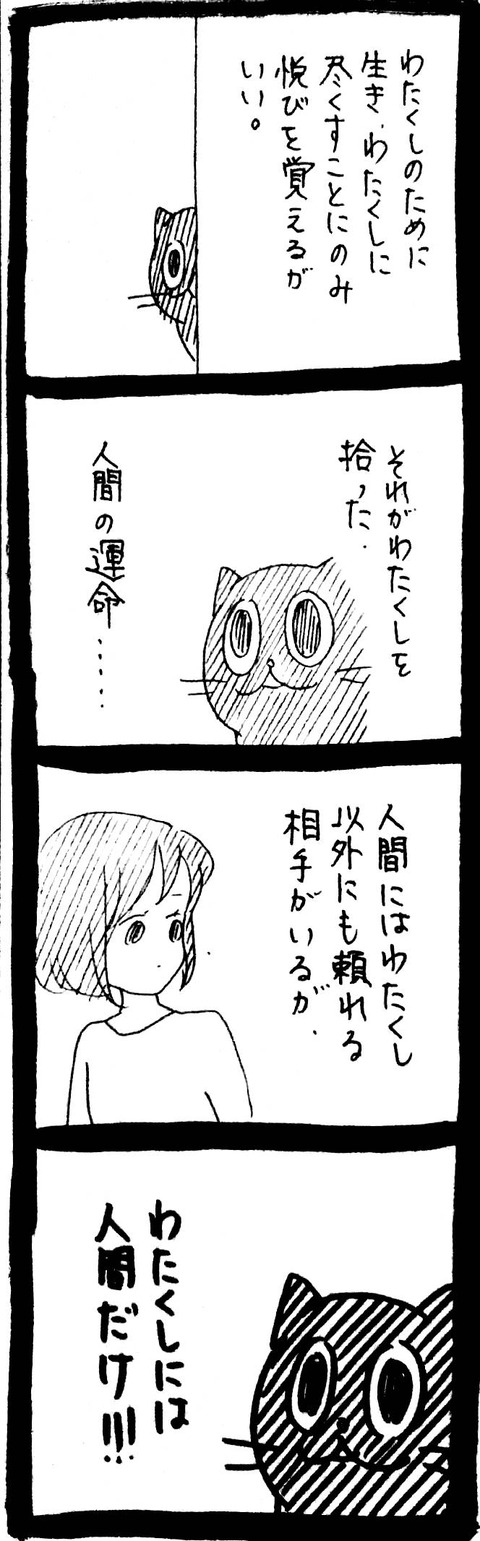 わたくしのために
生き、わたくしに
尽くすことにのみ
悦びを覚えるが
いい。
それがわたくしを
拾った、
人間の運命……
人間にはわたくし
以外にも頼れる
相手がいるが、
わたくしには
人間だけ!!!